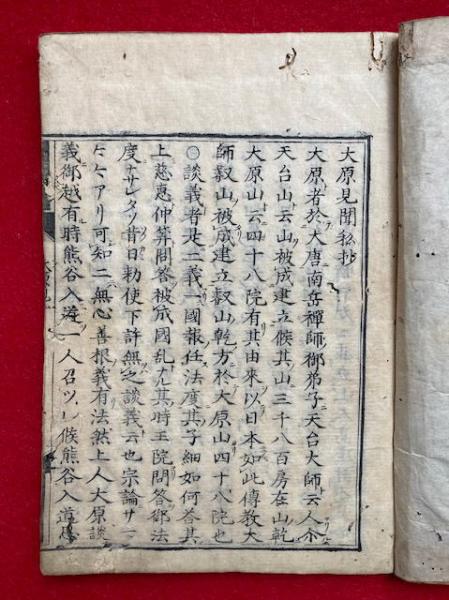 大原見聞私抄
大原者於大唐南岳禅師御弟子天台大師云人尓
天台山云山被成建立候其山三千八百房在山乾
大原山云四十八院有其由来以日本如此傳教大
師叡山被成建立叡山乾方於大原山四十八院也
〇談義者是二義一國報任法度其子細如何答其
上慈恵仲筭問答被成國乱ナルハ其時王院問答御法
度ナサレタリ昔日勅使下許無之談義云也宗論サ
アリ可知二無心善根義有法然上人大原談
義御越有時熊谷入道一人召ツレ候熊谷入道